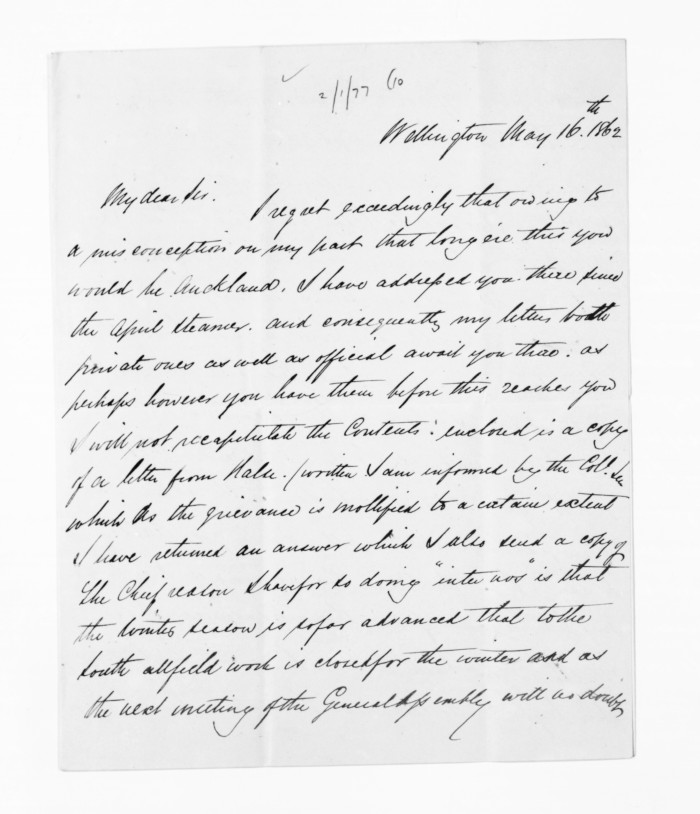 2/1/77
Wellington May 16.th 1862
My dear Sir. I regret exceedingly that owing to
a misconception on my part that long ére this you
would be Auckland. I have addressed you there since
the April Steamer. and consequently my letters both
private ones as well as official await you there. as
perhaps however you have them before this reaches you
I will not recapitulate the Contents: enclosed is a copy
of a letter from Halse. (written I am informed by the Col.
which as the grievance is mollified to a certain extent
I have returned an answer which I also send a copy of
The Chief reason I have for so doing "inter nos" is that
the Winter season is so far advanced that to the
South all field work is closed for the winter and as
the next meeting of the General Assembly will no doubt